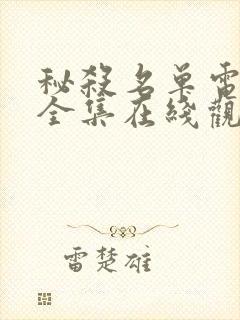 秘殺名單電
全集在綫觀
雷楚雄